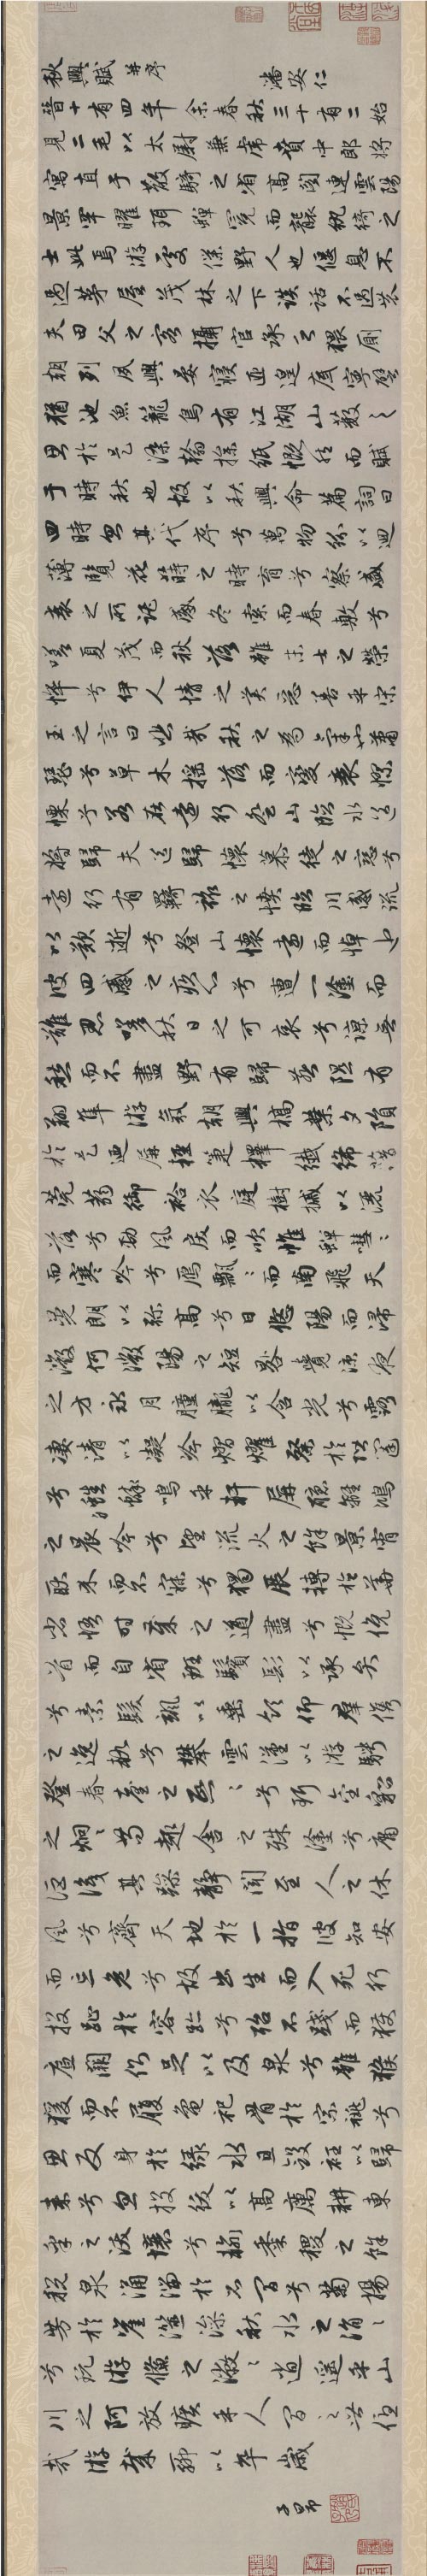 秋興賦 并序 潘安仁
晉十有四年余春秋三十有二始
見二毛以太尉兼虎賁中郎將
寓直于散騎之省高閣連雲陽
景罕曜珥蟬冕而襲紈綺之
士此焉游處僕野人也偃息不
過茅屋茂林之下談話不過農
夫田父之客攝官承乏猥厠
朝列夙興晏寢匪遑底寧譬
猶池魚籠鳥有江湖山藪之
思於是染翰操紙慨然而賦
于時秋也故以秋興命篇詞曰
四時忽其代序兮萬物紛以迴
薄覽花蒔之時育兮察盛
衰之所託感冬索而春敷兮
嗟夏茂而秋落雖末士之榮
悴兮伊人情之美惡善乎宋
玉之言曰悲哉秋之為氣也蕭
瑟兮草木搖落而變衰憭
慄兮若在遠行登山臨水送
將歸夫送歸懷慕徒之戀兮
遠行有羈旅之憤臨川感流
以歎逝兮登山懷遠而悼近
彼四慼之疚心兮遭一塗而
難忍嗟秋日之可哀兮諒無
愁而不盡野有歸燕隰有
翔隼游氛朝興槁葉夕隕
於是迺屏輕箑釋纖絺藉
莞蒻御袷衣庭樹摵以灑
落兮勁風戾而吹帷蟬嘒〻
而寒吟兮鴈飄〻而南飛天
晃朗以彌高兮日悠陽而浸
微何微陽之短晷覺涼夜
之方永月朣朧以含光兮露
凄清以凝冷熠燿粲於階闥
兮蟋蟀鳴乎軒屏聽離鴻
之晨吟兮望流火之餘景宵
耿介而不寐兮獨展轉於華
省悟時歲之遒盡兮慨俛
首而自省斑鬢髟以承弁
兮素髮颯以垂領仰群儁
之逸軌兮攀雲漢以游騁
登春臺之熙〻兮珥金貂
之炯〻苟趣舍之殊塗兮庸
詎識其躁靜聞至人之休
風兮齊天地於一指彼知安
而忘危兮故出生而入死行
投趾於容跡兮殆不踐而獲
底闕側足以及泉兮雖猴
猨而不履龜祀骨於宗祧兮
思反身於綠水且斂衽以歸
來兮忽投紱以高厲耕東
皋之沃壤兮輸黍稷之餘
稅泉涌湍於石間兮菊揚
芳於崖澨澡秋水之涓〻
兮玩游鯈之潎〻逍遙乎山
川之阿放曠乎人間之世優
哉游哉聊以卒歲
子昂